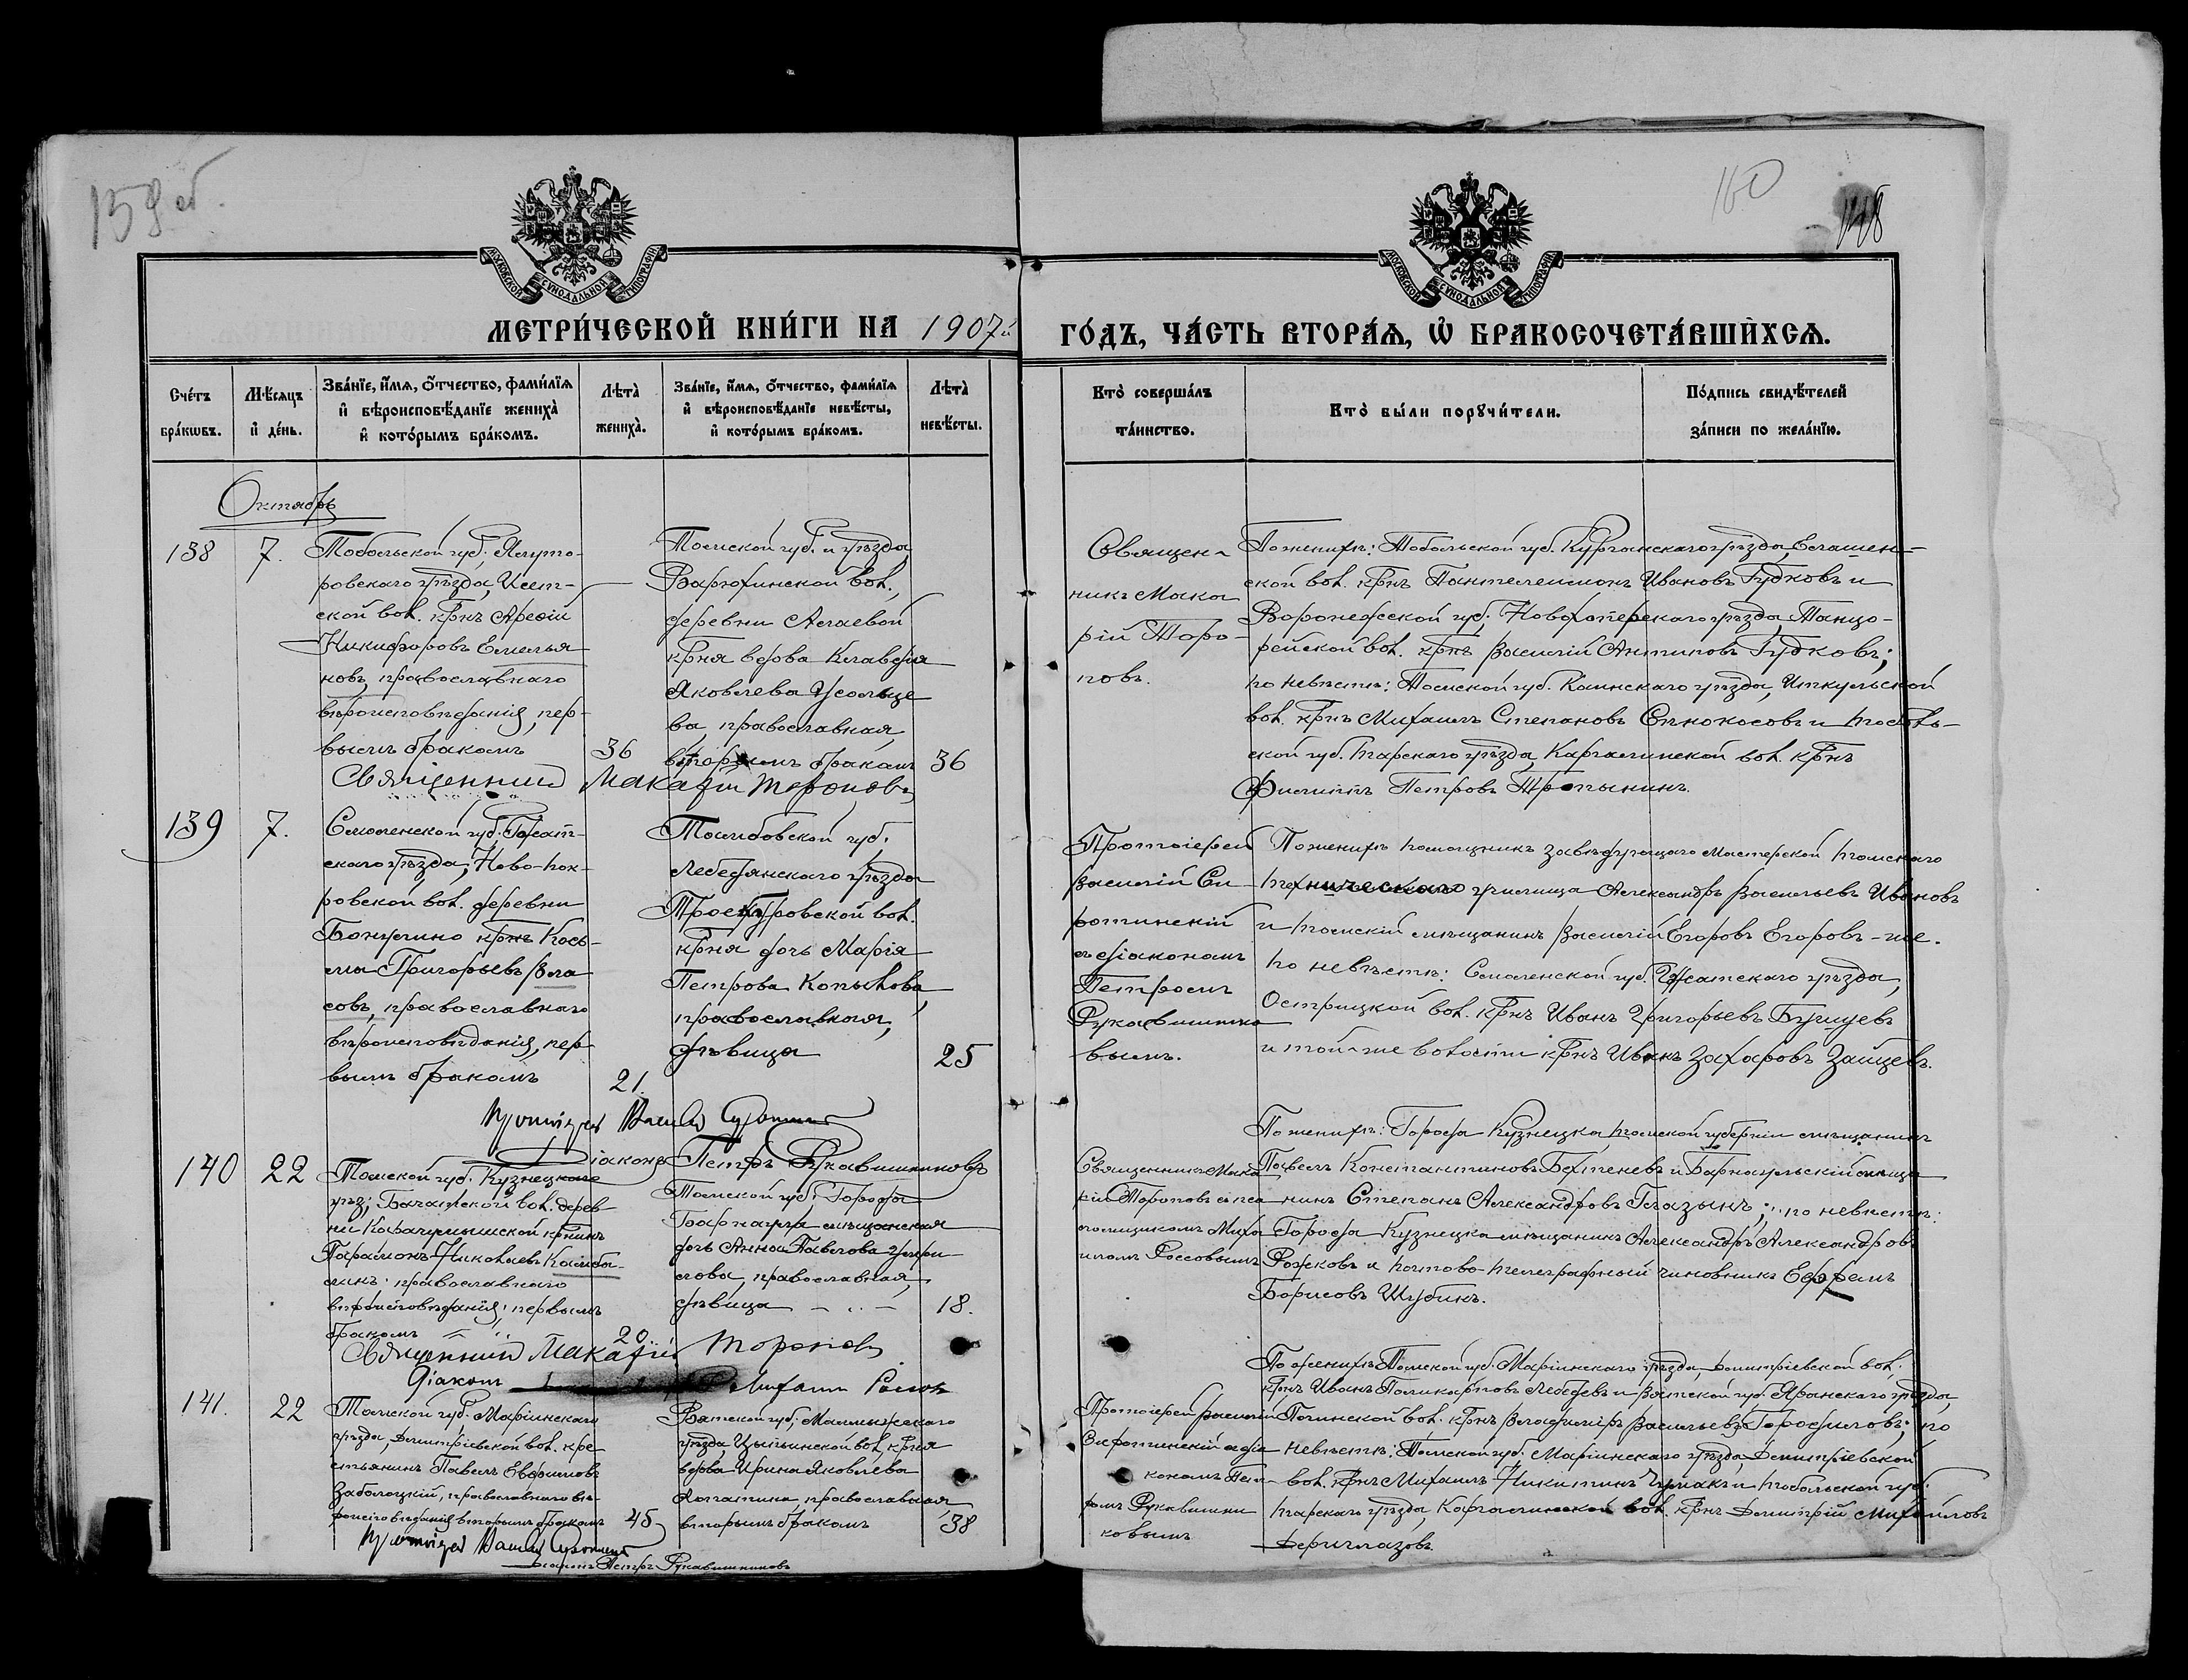 159 об.
160
118
МОСКОВСКОЙ СѴНОДАЛЬНОЙ ТИПОГРАФІИ
МОСКОВСКОЙ СѴНОДАЛЬНОЙ ТИПОГРАФІИ
МЕТРИ́ЧЕСКОЙ КНИ́ГИ НА 1907й
ГО́ДЪ, ЧА́СТЬ ВТОРА́Ѧ, Ѡ҆ БРАКОСОЧЕТА́ВШИХСѦ.
Сче́тъ бра́кѡвъ.
Мѣ́сяцъ и҆ де́нь.
Зва́нїе, и҆́мѧ, ѻ҆́тчество, фами́лїѧ и҆ вѣроисповѣ́данїе жениха̀ и҆ кото́рымъ бра́комъ.
Лѣта̀ жениха̀.
Зва́нїе, и҆́мѧ, ѻ҆́тчество, фами́лїѧ и҆ вѣроисповѣ́данїе невѣ́сты, и҆ кото́рымъ бра́комъ.
Лѣта̀ невѣ́сты.
Кто̀ соверша́лъ та́инство.
Кто̀ бы́ли порꙋчи́тели.
По́дпись свидѣ́телей за́писи по жела́нїю.
Октябрь
138
7.
Тобольской губ; Ялуто-
ровскаго уѣзда, Исет-
ской вол. крнъ Арефій
Никифоровъ Емелья
новъ, православнаго
вѣроисповѣданія, пер-
вымъ бракомъ
36
Томской губ. и уѣзда
Варюхинской вол.,
деревни
крня вдова Клавдія
Яковлева Усольце
ва, православная,
вторымъ бракомъ
36
Священ-
никъ Мака
рій Торо-
повъ.
По женихѣ: Тобольской губ. Курганскаго уѣзда,
ской вол. крнъ Пантелеимонъ Ивановъ Гудковъ и
Воронежской губ; Новохоперскаго уѣзда,
вол. крнъ Василій Антиповъ Гудковъ;
по невѣстѣ: Томской губ. Каинскаго уѣзда, Иткульской
вол. крнъ Михаилъ Степановъ и Тоболь-
ской губ. Тарскаго уѣзда, вол. крнъ
Филиппъ Петровъ Тропынинъ.
Священникъ Макарій Тороповъ
139
7.
Смоленской губ. Гжат-
скаго уѣзда, Ново-Пок-
ровской вол. деревни
крнъ Кось-
ма Григорьевъ Вла
совъ, православнаго
вѣроисповѣданія, пер
вымъ бракомъ
21.
Тамбовской губ.
Лебедянскаго уѣзда
вол.
крня дочь Марія
Петрова Копылова,
православная,
дѣвица
25
Протоіерей
Василій Си-
ротинскій
съ діакономъ
Петромъ
Рукавишнико
вымъ.
По женихѣ помощникъ завѣдующаго Мастерской Томскаго
техническаго училища Александръ Васильевъ Ивановъ
и Томскій мѣщанинъ Василій Егоровъ Егоровъ-же.
По невѣстѣ: Смоленской губ. Гжатскаго уѣзда,
Острицкой вол. крнъ Иванъ Григорьевъ
и той-же волости крнъ Иванъ Захаровъ Зайцевъ.
Протоіерей Василій Сиротинскій
Діаконъ Петръ Рукавишниковъ
140
22
Томской губ. Кузнецкаго
уѣз; Бачатской вол. дерев
ни
Парамонъ Николаевъ Камба-
линъ; православнаго
вѣроисповѣданія, первымъ
бракомъ
20
Томской губ; Города
Барнаула мѣщанская
дочь Анна Павлова
православная,
дѣвица
18.
Священникъ Мака
рій Тороповъ съ пса
ломщикомъ Миха
иломъ Россовымъ
По женихѣ: Города Кузнецка, Томской губерніи мѣщанинъ
Павелъ Константиновъ Бехтеневъ и Барнаульскій мѣща
нинъ Степанъ Александровъ Глазынъ; по невѣстѣ:
Города Кузнецка мѣщанинъ Александръ Александровъ
и почтово-телеграфный чиновникъ
Борисовъ Шубинъ.
Священникъ Макарій Тороповъ
Діаконъ
Михаилъ Россовъ
141.
22
Томской губ. Маріинскаго
уѣзда, Дмитріевской вол. кре-
стьянинъ Павелъ Евфимовъ
Заболоцкій, православнаго вѣ-
роисповѣданія вторымъ бракомъ
45
Вятской губ; Малмыжскаго
уѣзда, Цыпьинской вол. крня
вдова Ирина Яковлева
православная,
вторымъ бракомъ
38
Протоіерей Василій
Сиротинскій съ діа
кономъ Пет-
ромъ Рукавишни
ковымъ
По женихѣ Томской губ. Маріинскаго уѣзда, Дмитріевской вол.
крнъ Иванъ Поликарповъ Лебедевъ и Вятской губ. Яранскаго уѣзда,
вол. крнъ Владиміръ Васильевъ Городиловъ; по
невѣстѣ: Томской губ. Маріинскаго уѣзда, Дмитріевской
вол. крнъ Михаилъ Никитинъ и Тобольской губ.
Тарскаго уѣзда, вол. крнъ Дмитрій Михайловъ
Дериглазовъ.
Протоіерей Василій Сиротинскій
Діаконъ Петръ Рукавишниковъ